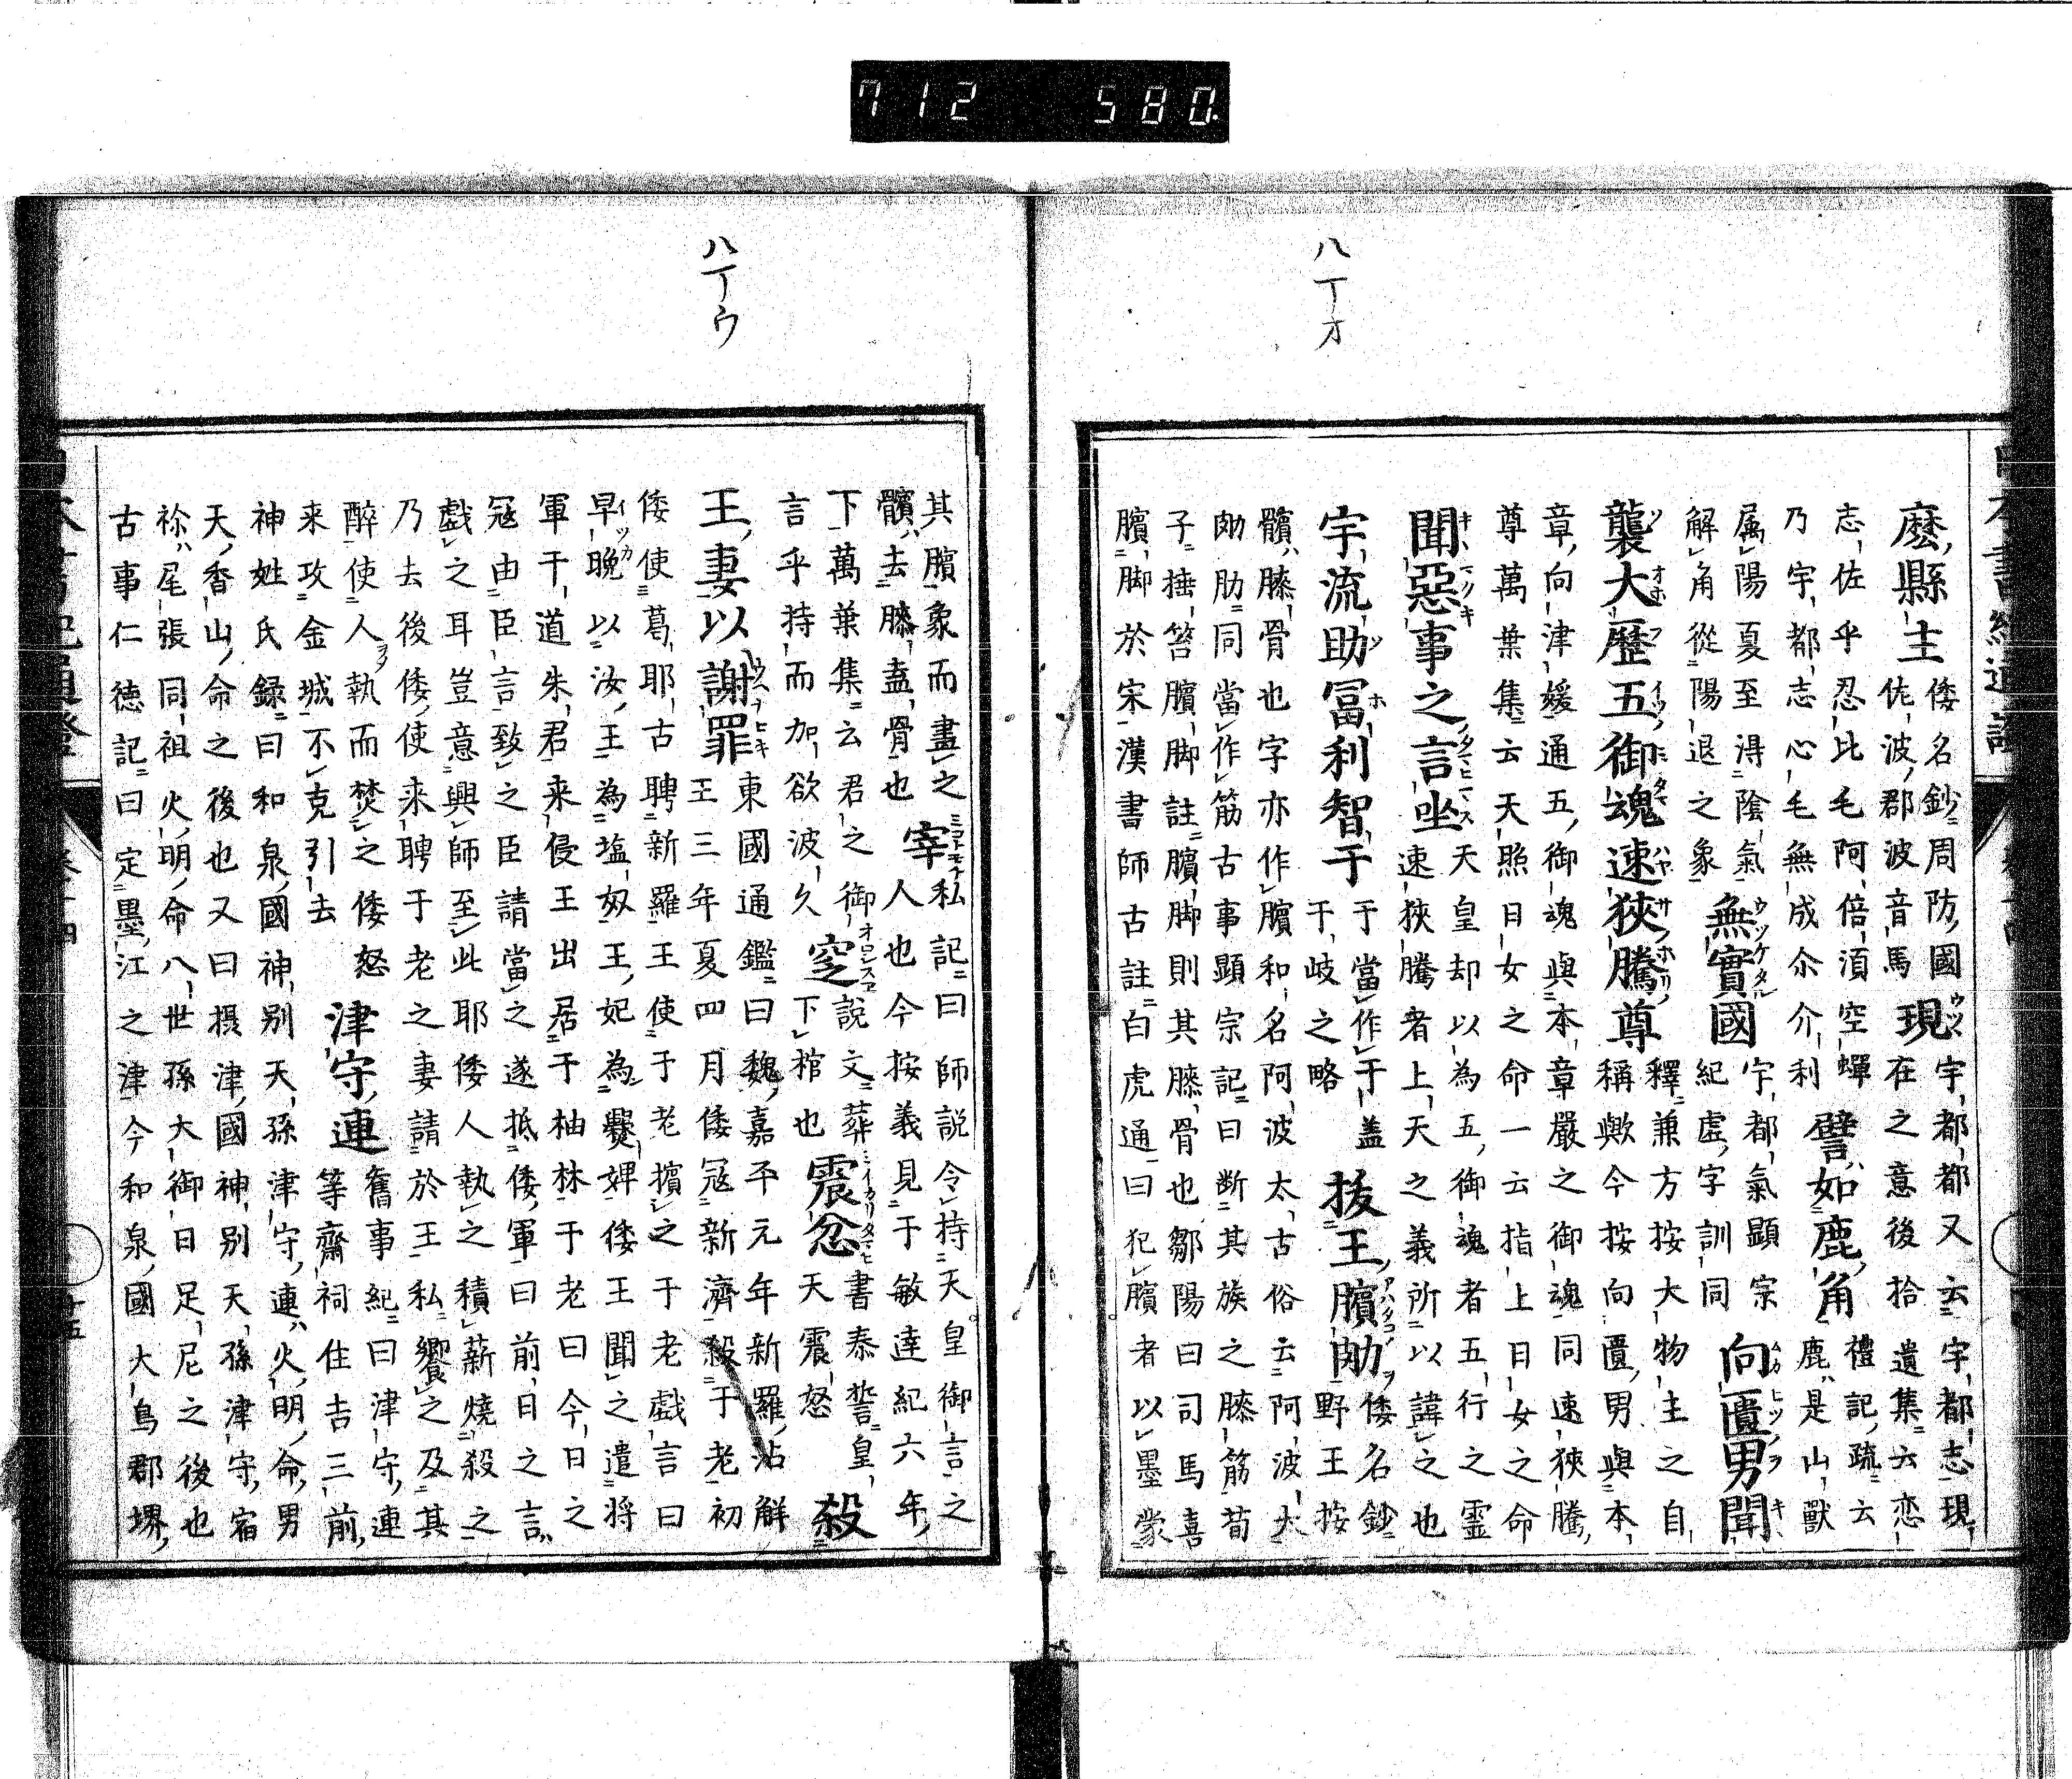 八丁オ
麽縣主
倭名鈔周防國
佐波郡波音馬
現
宇都都又云宇都志現
在之意後拾遺集云恋
志佐乎忍比毛阿倍湏空蟬
乃宇都志心毛無成尓介利
譬如鹿角
禮記疏云
鹿是山獸
属陽夏至得陰氣
解角從陽退之象
無實國
宇都氣顯宗
紀虚字訓同
向匱男聞
襲大歷五御魂速狹騰尊
釋兼方按大物主之自
稱歟今按向匱男與本
章向津媛通五御魂與本章嚴之御魂同速狹騰
尊萬葉集云天照日女之命一云指上日女之命
聞惡事之言坐
天皇却以為五御魂者五行之霊
速狹騰者上天之義所以諱之也
宇流助冨利智干
于當作干盖
干岐之略
拔王臏肋
倭名鈔
野王按
髕膝骨也字亦作臏和名阿波太古俗云阿波太
肋同當作筋古事顯宗記曰断其族之膝筋荀
子捶笞臏脚註臏脚則其膝骨也鄒陽曰司馬喜
臏脚於宋漢書師古註白虎通曰犯臏者以墨蒙
八丁ウ
其臏象而畫之
髕去膝盖骨也
宰
私記曰師説令持天皇御言之
人也今按義見于敏達紀六年
下萬葉集云君之御
言乎持而加欲波久
窆
説文葬
下棺也
震忿
書泰誓皇
天震怒
殺
王妻以謝罪
東國通鑑曰魏嘉平元年新羅沾解
王三年夏四月倭冦新濟殺于老初
倭使葛耶古聘新羅王使于老擯之于老戯言曰
早晩以汝王為塩奴王妃為爨婢倭王聞之遣将
軍于道朱君来侵王出居于柚林于老曰今日之
冦由臣言致之臣請當之遂抵倭軍曰前日之言
戯之耳豈意興師至此耶倭人執之積薪燒殺之
乃去後倭使来聘于老之妻請於王私饗之及其
醉使人執而焚之倭怒
来攻金城不克引去
津守連
舊事紀曰津守連
等齋祠住吉三前
神姓氏録曰和泉國神別天孫津守連火明命男
天香山命之後也又曰摂津國神別天孫津守宿
祢尾張同祖火明命八世孫大御日足尼之後也
古事仁徳記曰定墨江之津今和泉國大鳥郡堺